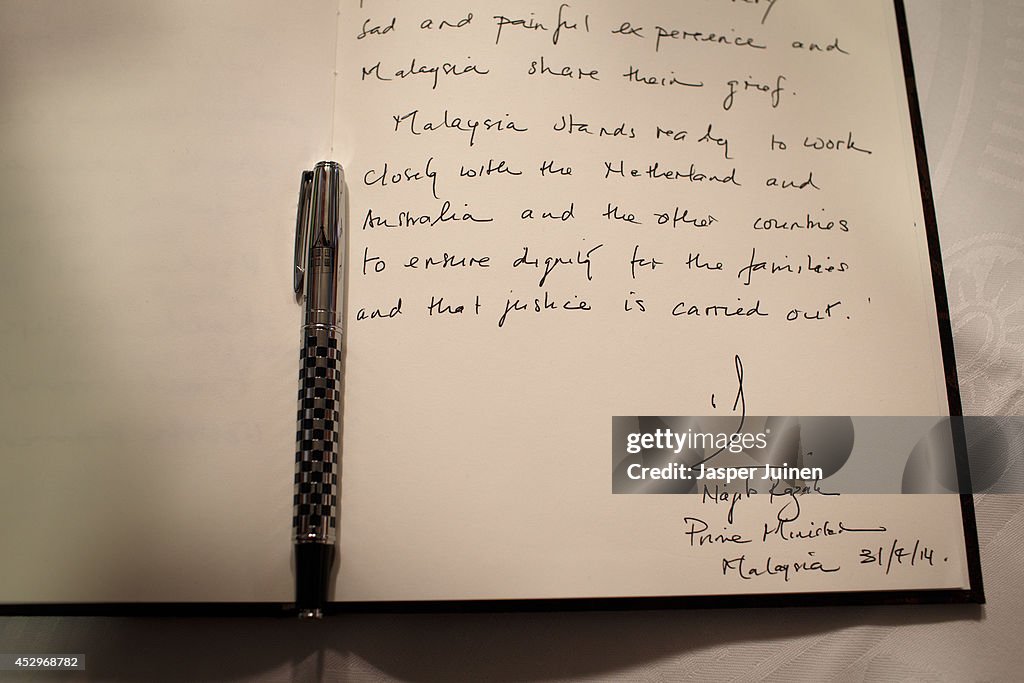 sad and painful experience and
Malaysia share their grief.
Malaysia stands ready to work
closely with the Netherland and
Australia and the other countries
to ensure dignity for the families
and that justice is carried out.
gettyimages®
Jasper Juinen
Najib Razak
Prime Minister
Malaysia 31/7/14.
452968782